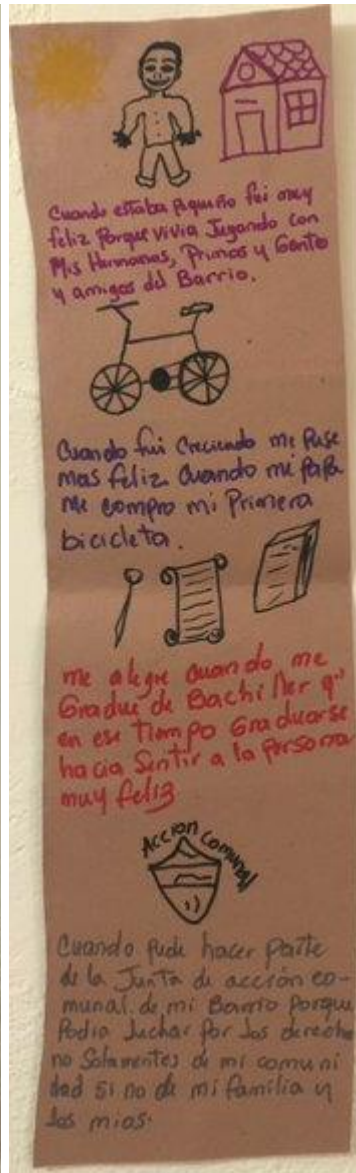 Cuando estaba Pequeño fui muy
feliz Porque vivia Jugando con
Mis Hermanas, Primos y Gente
y amigos del Barrio.
Cuando fui Creciendo me Puse
mas feliz. Cuando mi PaPa
Me compro mi Primera
bicicleta.
me alegre cuando me
Gradue de Bachiller q'
en ese Tiempo Graduarse
hacia Sentir a la Persona
muy feliz
Accion Comunal
Cuando Pude hacer Parte
de la Junta de acción co-
munal. de mi Barrio Porque
Podia luchar Por los derecho
no Solamentes de mi comuni
dad si no de mi familia y
los mios.